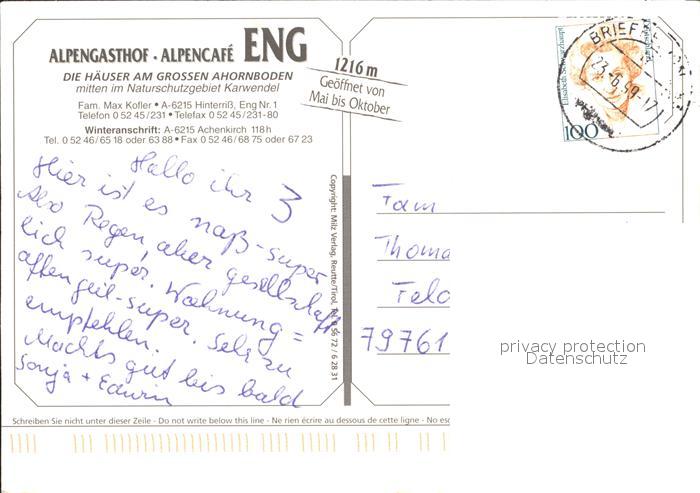 ALPENGASTHOF · ALPENCAFÉ ENG
DIE HÄUSER AM GROSSEN AHORNBODEN
mitten im Naturschutzgebiet Karwendel
Fam. Max Kofler • A-6215 Hinterriß, Eng Nr. 1
Telefon 0 52 45/231 • Telefax 0 52 45/231-80
Winteranschrift: A-6215 Achenkirch 118h
Tel. 0 52 46/65 18 oder 63 88 • Fax 0 52 46/68 75 oder 67 23
1216 m
Geöffnet von
Mai bis Oktober
Hallo ihr 3
Hier ist es naß-super
Also Regen, aber gesellschaft
lich super. Wohnung =
affengeil-super. Sehr zu
empfehlen.
Machts gut bis bald
Sonja + Edwin
Copyright: Milz Verlag, Reutte/Tirol, Tel. 0 56 72 / 6 28 31
Elisabeth Schwarzhaupt
Deutschland
100
BRIEF
23.-6.99-17
Fam
Thoma
Feld
79761
privacy protection
Datenschutz
Schreiben Sie nicht unter dieser Zeile - Do not write below this line - Ne rien écrire au dessous de cette ligne - No esc